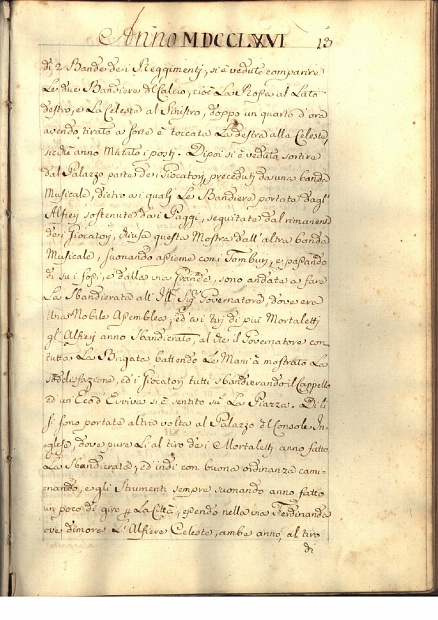 Anno MDCCLXVI 13
di 2 Bande dei Reggimenti, si è veduto comparire
Le due Bandiere del Calcio, cioè La Rossa al Lato
destro, e La Celeste al Sinistro, doppo un quarto d'ora
avendo tirato a sorte è toccata La destra alla Celeste,
sicchè anno Mutato i posti. Dipoi si è veduta sortire
dal Palazzo parte dei Giocatorj preceduti da una banda
Musicale, dietro ai quali Le Bandiere portate dagl'
Alfierj sostenute dai Paggi, seguitate dal rimanente
dei Giocatorj, chiusa questa Mostra dall'altra banda
Musicale, suonando assieme con i Tamburj, e passando
di su i fossi, e dalla via Grande, sono andati a fare
La Sbandierata all' Ill. Sig. Governatore, dove era
una Nobile Assemblea, ed ai tirj di più Mortaletti
gl' Alfierj anno Sbandierato, al che il Governatore con
tutta La Brigata battendo Le Mani à mostrato La
sodisfazione, ed i Giocatorj tutti sbandierando il Cappello
ed un Eco d'Evviva si è sentito su La Piazza. Di li
si sono portate altra volta al Palazzo del Console In-
glese, dove pure Li al tiro dei Mortaletti anno fatto
La Sbandierata, ed indi con buona ordinanza cami-
nando, e gli Strumenti sempre suonando anno fatto
un poco di giro La Città, essendo nella via Ferdinanda
ove dimora L'Alfiere Celeste, ambe anno, al tiro
di